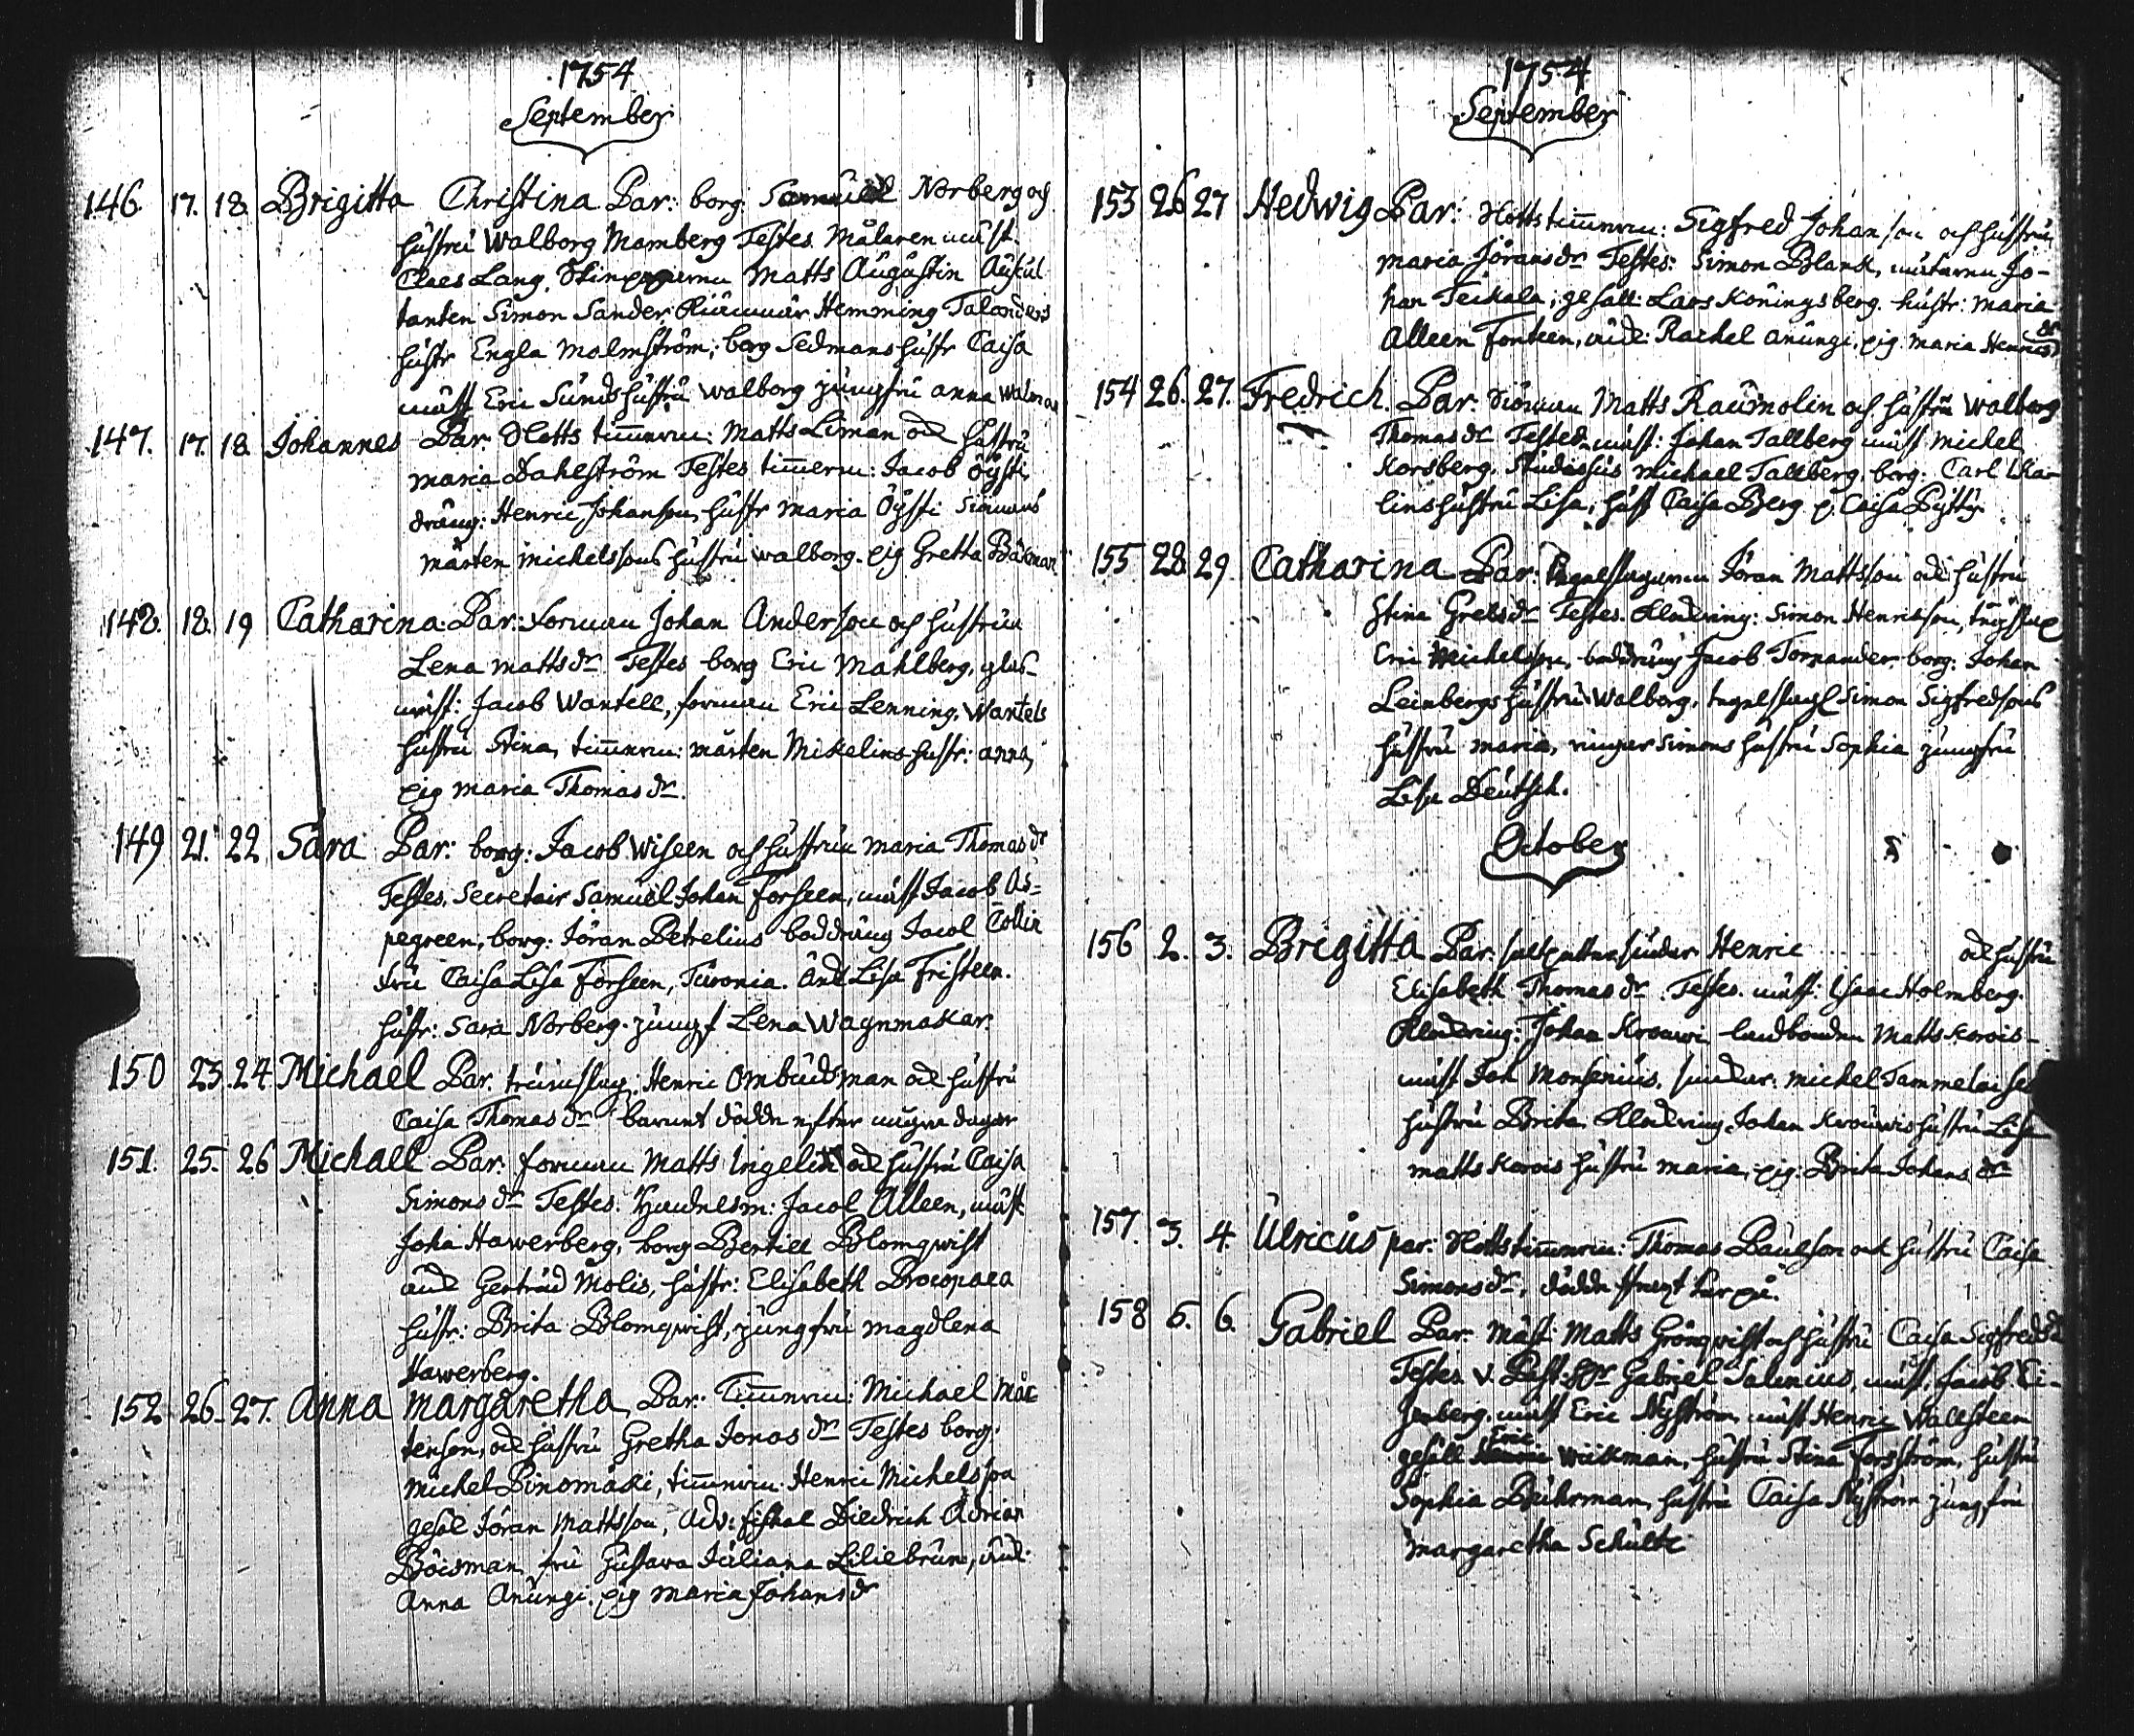 1754
September
146. 17. 18. Brigitta Christina Par: borg: Samuel Norberg och
hustru Walborg Mamberg Testes. Målaren mäst.
Claes Lang, Matts Augustin Auscul
tanten Simon Sander Hemming Talanders
hustr Engla Malmström; borg Sedmans hustr Caisa
mäst Eric Sunds hustru Walborg jungfru Anna Walman
147. 17. 18. Johannes Par. Slotts timmerm: Matts Liman och hustru
Maria Dahlström Testes timmerm: Jacob Öysti
dräng: Henric Johanson, hustr Maria Öysti
Mårten Michelssons hustru Walborg. pig Gretta Bäckman
148. 18. 19 Catharina. Par: forman Johan Anderson och hustrun
Lena Mattsdr Testes borg Eric Mahlberg, glas-
mäst: Jacob Wantell, forman Eric Lenning, Wantels
hustru Stina, timmerm: Mårten Mikelins hustr: Anna,
pig Maria Thomasdr.
149 21. 22 Sara Par: borg: Jacob Wiseen och hustrun Maria Thomasdr
Testes. Secretair Samuel Johan Forseen, mäst Jacob As=
pegreen, borg: Jöran Petrelius boddräng Jacob Collin
fru Caisa Lisa Forseen, Turonia. Lisa Fristeen.
hustr: Sara Norberg. jungf Lena Wagnmakar.
150 23. 24 Michael Par. Henric Ombudsman och hustru
Caisa Thomasdr barnet dödde efter några dagar
151. 25. 26 Michael Par: forman Matts Ingelin och hustru Caisa
Simonsdr Testes. Handelsm: Jacob Alleen, mäst
Joha Hawerberg, borg Bertill Blomqwist
Gertrud Molis, hustr: Elisabeth Procopaea
hustr: Brita Blomqwist, jungfru Magdlena
Hawerberg.
152 26. 27. Anna Margaretha, Par: Timmerm: Michael Mår
tenson, och hustru Gretha Jonasdr Testes borg.
Michel Pinomäki, timmerm: Henric Michelsson
gesäl Jöran Mattsson, Adv: fiskal Diedrich Adrian
Böisman, fru Gustava Juliana Liliebrun,
Anna Anungi. pig Maria Johansdr
1754
September
153 26 27 Hedwig Par: Slotts timmerm: Sigfred Johanson och hustru
Maria Jöransdr Testes: Simon Blank, Jo-
han Teikala; gesäll: Lars Königsberg. hustr: Maria
Alleen Fonteen, Rachel Anungi, pig. Maria Henricsdr
154 26. 27. Fredrich. Par. Matts Raumolin och hustru Walborg
Thomasdr Testes mäst: Johan Tallberg mäst Michel
Korsberg. Studiosus Michael Tallberg, borg: Carl
lins hustru Lisa, hust Caisa Berg p. Caisa Pytty.
155 28 29. Catharina Par: Jöran Mattsson och hustru
Stina Grelsdr Testes. Simon Henricsson,
Eric Michelsson, boddräng Jacob Tornander. borg: Johan
Leinbergs hustru Walborg, Simon Sigfredsons
hustru Maria, Simons hustru Sophia jungfru
Lisa Deutsch.
October
156 2. 3. Brigitta Par. saltpettersiudar Henric och hustru
Elisabeth Thomasdr. Testes. mäst: Isaac Holmberg.
Johan Krouwi landbonden Matts Korois-
mäst Joh Monsenius, siudar: Michel Tammelaisen
hustru Brita. Johan Krouwis hustru Lisa
Matts Korois hustru Maria, pig: Brita Johansdr
157. 3. 4. Ulricus par: Slotts timmerm: Thomas Paulson och hustru Caisa
Simonsdr, dödde strax här på.
158 5. 6. Gabriel Par: Mäst: Matts Grönqwist och hustru Caisa Sigfredsdr
Testes V. Past: Hr Gabriel Salenius, mäst, Jacob Ei-
senberg, mäst Eric Nyström mäst Henric Wallsteen
gesäll Eric Wickman, hustru Stina Forsström, hustru
Sophia Buhrman, hustru Caisa Nyström jungfru
Margaretha Schultz